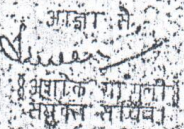 आज्ञा से,
(अशोक गांगुली)
संयुक्त सचिव।